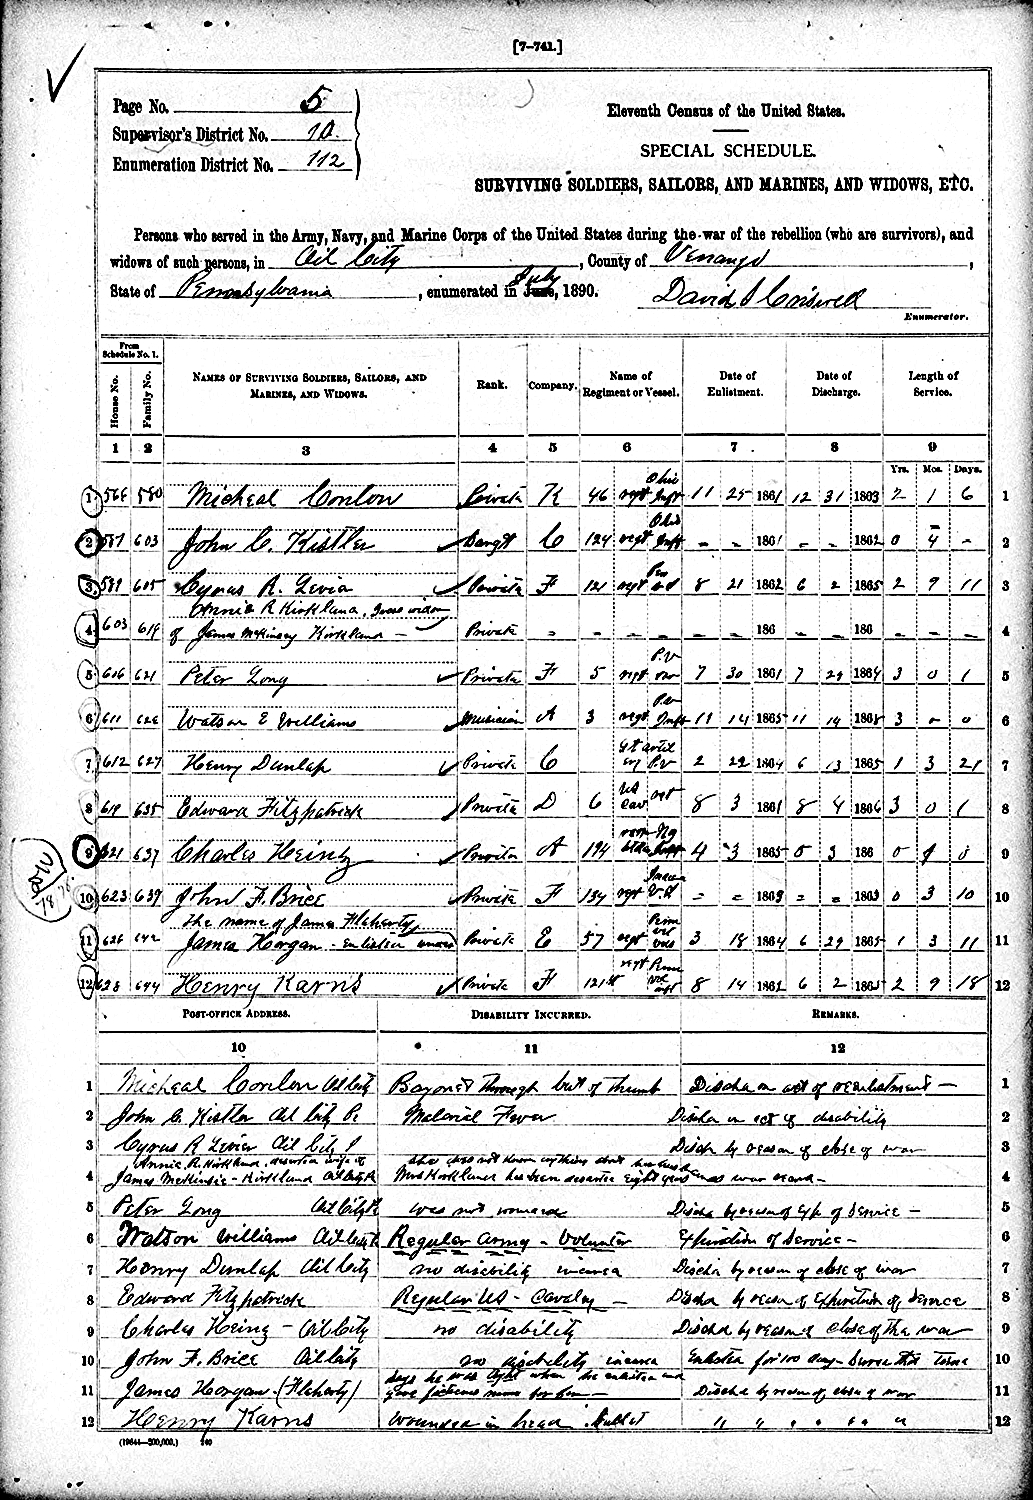 [7-741.]
Page No. 5
Supervisor's District No. 10.
Enumeration District No. 112
Eleventh Census of the United States.
SPECIAL SCHEDULE.
SURVIVING SOLDIERS, SAILORS, AND MARINES, AND WIDOWS, ETC.
Persons who served in the Army, Navy, and Marine Corps of the United States during the war of the rebellion (who are survivors), and
widows of such persons, in Oil City, County of Venango,
State of Pennsylvania, enumerated in June, July 1890. David S Criswell
Enumerator.
From Schedule No. 1.
House No. Family No. NAMES OF SURVIVING SOLDIERS, SAILORS, AND MARINES, AND WIDOWS. Rank. Company. Name of Regiment or Vessel. Date of Enlistment. Date of Discharge. Length of Service.
1 2 3 4 5 6 7 8 9
Yrs. Mos. Days.
1 566 580 Micheal Conlon Private K 46 regt Ohio Inft 11 25 1861 12 31 1863 2 1 6 1
2 587 603 John C. Kistler Sergt C 124 regt Ohio Inft - - 1861 - - 1862 0 4 - 2
3 589 605 Cyrus R. Levia Private F 121 regt 8 21 1862 6 2 1865 2 9 11 3
Annie R Kirkland, Grass widow
4 603 619 of James McKinsey Kirkland - Private - - - - - 186 - - 186 - - - 4
5 606 621 Peter Long Private F 5 regt P.V 7 30 1861 7 29 1864 3 0 1 5
6 611 626 Watson E Williams Musician A 3 regt Inft 11 14 1865 11 14 1868 3 - 0 6
7 612 627 Henry Dunlap Private C P.V 2 22 1864 6 13 1865 1 3 21 7
8 619 635 Edward Fitzpatrick Private D 6 US Cav 8 3 1861 8 4 1864 3 0 1 8
9 621 637 Charles Heintz Private A 194 4 3 1865 3 186 0 9
10 623 639 John F. Brice Private F 134 regt - - 1863 - - 1863 0 3 10 10
the name of James Flaherty
11 626 642 James Horgan - Enlisted under Private E 57 regt Penn vet vols 3 18 1864 6 29 1865 1 3 11 11
12 628 644 Henry Karns Private F 121st regt Penn 8 14 1862 6 2 1865 2 9 18 12
POST-OFFICE ADDRESS. DISABILITY INCURRED. REMARKS.
10 11 12
1 Micheal Conlon Oil City Bayonet through but of thumb Discha on act of reenlistment - 1
2 John C. Kistler Oil City Pa Malarial Fever Discha on act of disability 2
3 Cyrus R Levier Oil City P Discha by reason of close of war 3
Annie R. Kirkland, deserted wife of she does not know anything about her husbands
4 James McKinsie - Kirkland Oil City Pa Mrs Kirkland has been deserted Eight years war record - 4
5 Peter Long Oil City Pa was not wounded Discha by reason of Exp of Service - 5
6 Watson Williams Oil City Pa Regular Army - Volunter Expiration of Service - 6
7 Henry Dunlap Oil City no disability incured Discha by reason of close of war 7
8 Edward Fitzpatrick Regular US - Cavalry - Discha by reason of Expiration of Service 8
9 Charles Heinz - Oil City no disability Discha by reason of close of the war 9
10 John F. Brice Oil City no disability incured Enlisted for 100 days - Served this term 10
says he was tight when he enlisted and
11 James Horgan - (Flaherty) gave fictious name for fun - Discha by reason of close of war 11
12 Henry Karns wounded in head Bullet " " " " " " 12
(19644-200,000.) 140